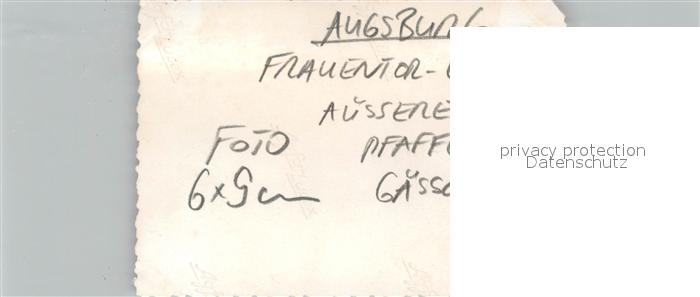 AUGSBURG
FRAUENTOR-
ÄUSSERE
FOTO PFAFF
6x9cm GÄSS
privacy protection
Datenschutz